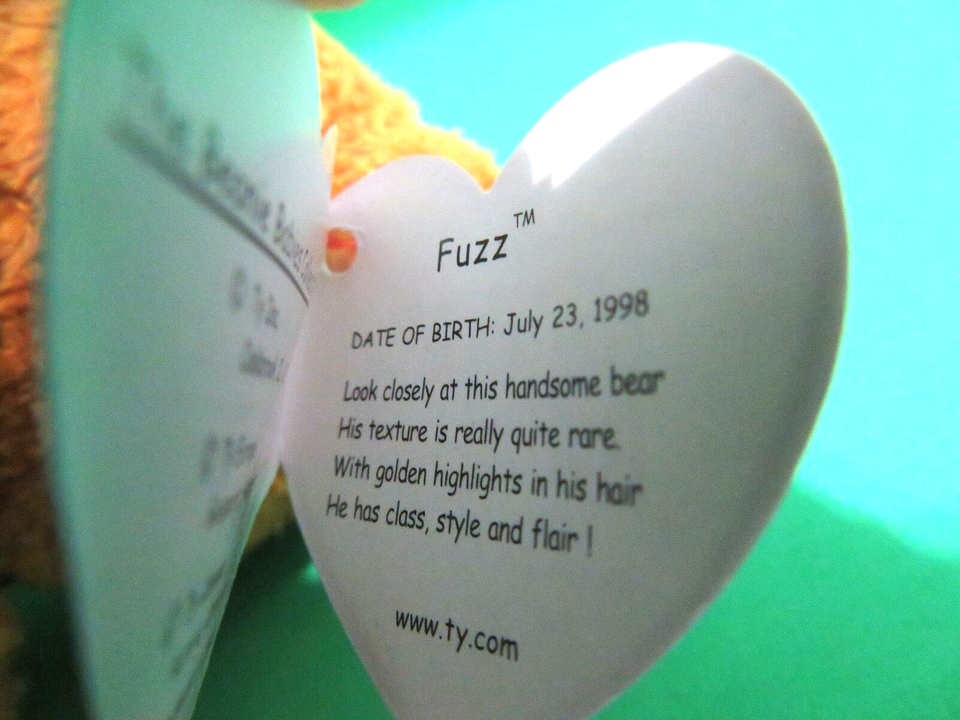 The Beanie Babies
© Ty Inc.
Fuzz™
DATE OF BIRTH: July 23, 1998
Look closely at this handsome bear
His texture is really quite rare.
With golden highlights in his hair
He has class, style and flair !
www.ty.com